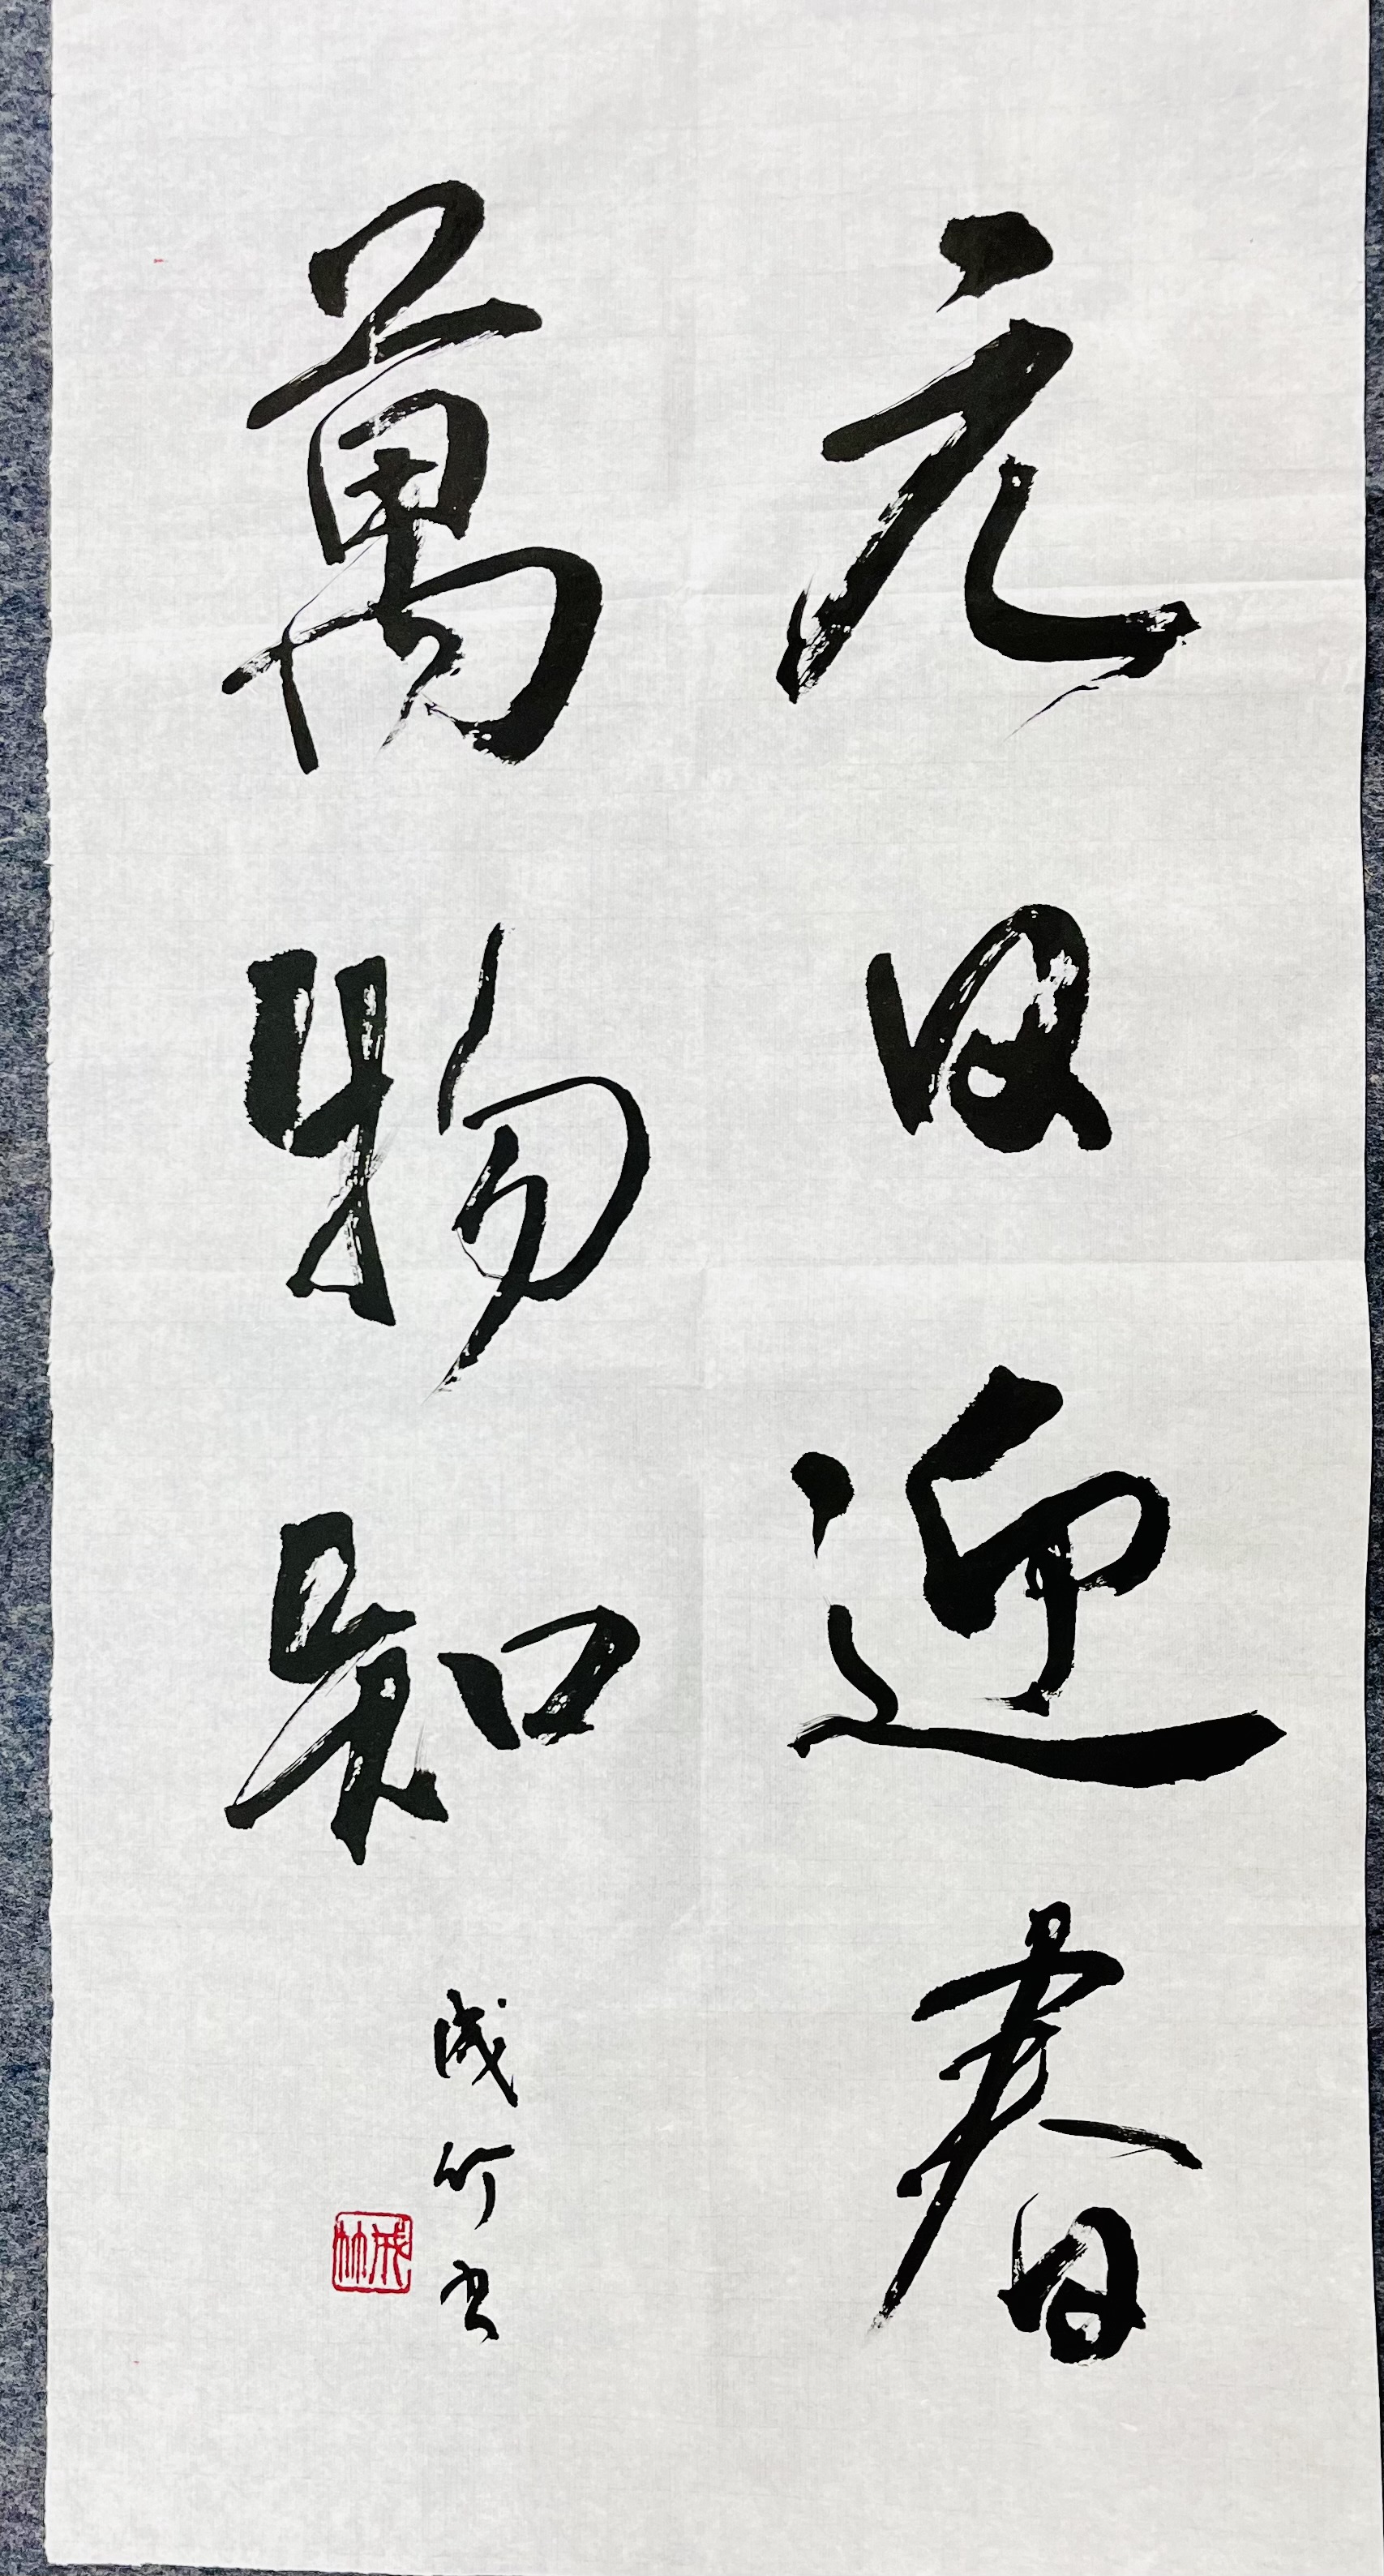 元日迎春
萬物知
成竹书
成竹